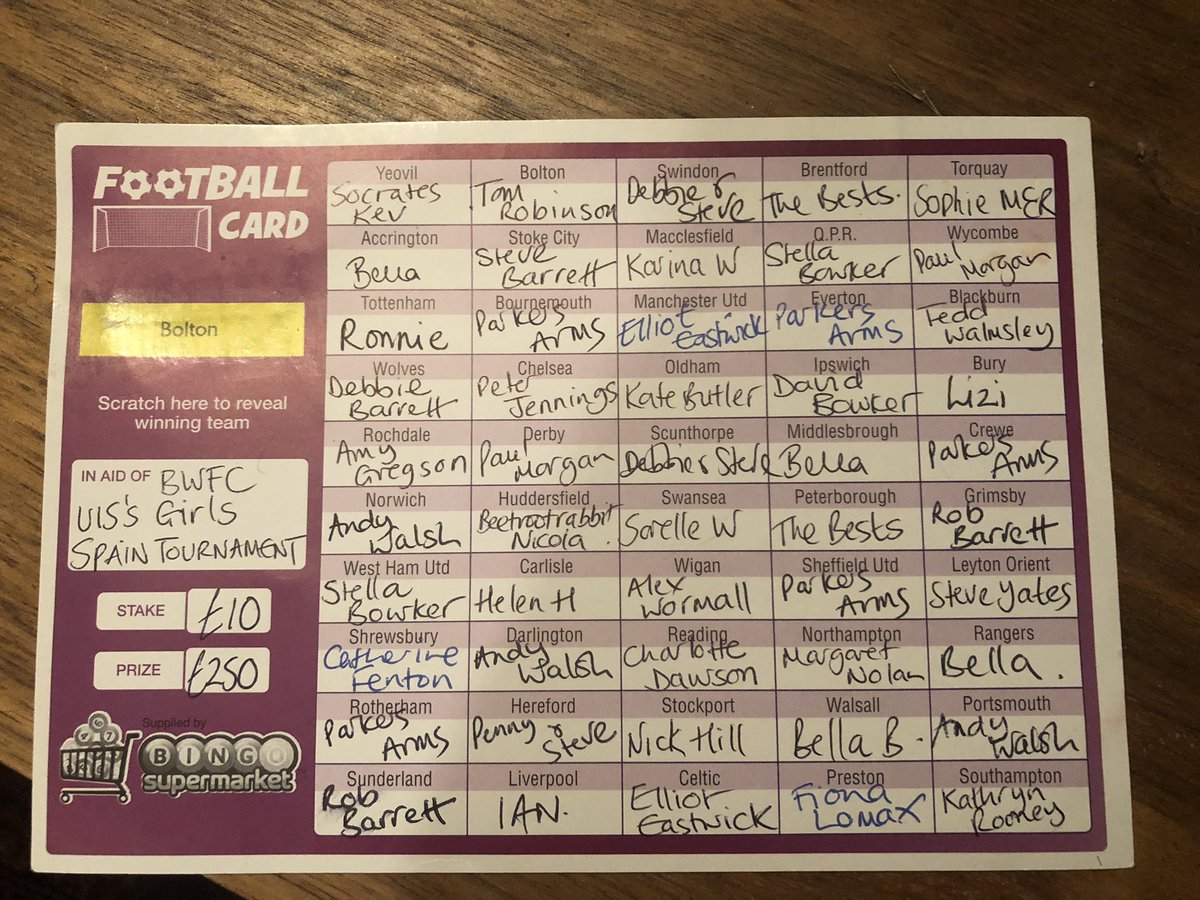 FOOTBALL
CARD
Bolton
Scratch here to reveal
winning team
IN AID OF BWFC
U15's Girls
SPAIN TOURNAMENT
STAKE £10
PRIZE £250
Supplied by
BINGO
supermarket
Yeovil Bolton Swindon Brentford Torquay
Socrates Kev Tom Robinson Debbie & Steve The Bests. Sophie MER
Accrington Stoke City Macclesfield Q.P.R. Wycombe
Bella Steve Barrett Karina W Stella Bowker Paul Morgan
Tottenham Bournemouth Manchester Utd Everton Blackburn
Ronnie Parkers Arms Elliot Eastwick Parkers Arms Tedd Walmsley
Wolves Chelsea Oldham Ipswich Bury
Debbie Barrett Peter Jennings Kate Butler David Bowker Lizi
Rochdale Derby Scunthorpe Middlesbrough Crewe
Amy Gregson Paul Morgan Debbie & Steve Bella Parkers Arms
Norwich Huddersfield Swansea Peterborough Grimsby
Andy Walsh Beetrootrabbit Nicola. Sorelle W The Bests Rob Barrett
West Ham Utd Carlisle Wigan Sheffield Utd Leyton Orient
Stella Bowker Helen H Alex Wormall Parkers Arms Steve Yates
Shrewsbury Darlington Reading Northampton Rangers
Catherine Fenton Andy Walsh Charlotte Dawson Margaret Nolan Bella.
Rotherham Hereford Stockport Walsall Portsmouth
Parkers Arms Penny & Steve Nick Hill Bella B. Andy Walsh
Sunderland Liverpool Celtic Preston Southampton
Rob Barrett IAN. Elliot Eastwick Fiona Lomax Kathryn Rooney